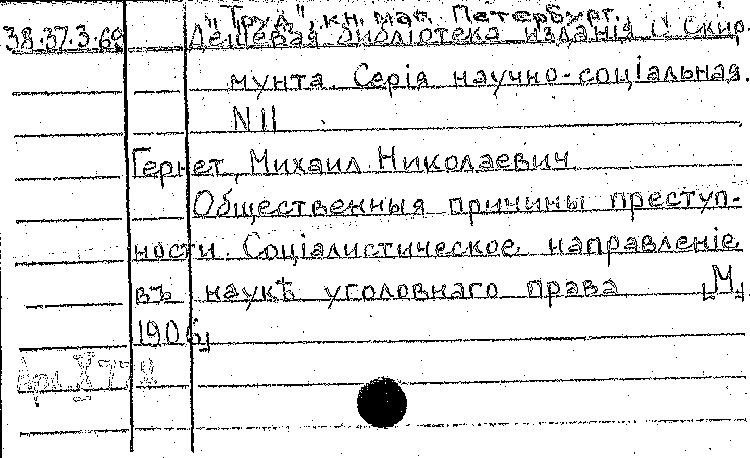 "Труд", кн. маг. Петербург.
38.37.3.69 Дешевая библіотека изданія Скир-
мунта. Серія научно-соціальная.
N 11
Гернет, Михаил Николаевич
Общественныя причины преступ-
ности. Соціалистическое направленіе
въ наукѣ уголовнаго права [М,
1906]